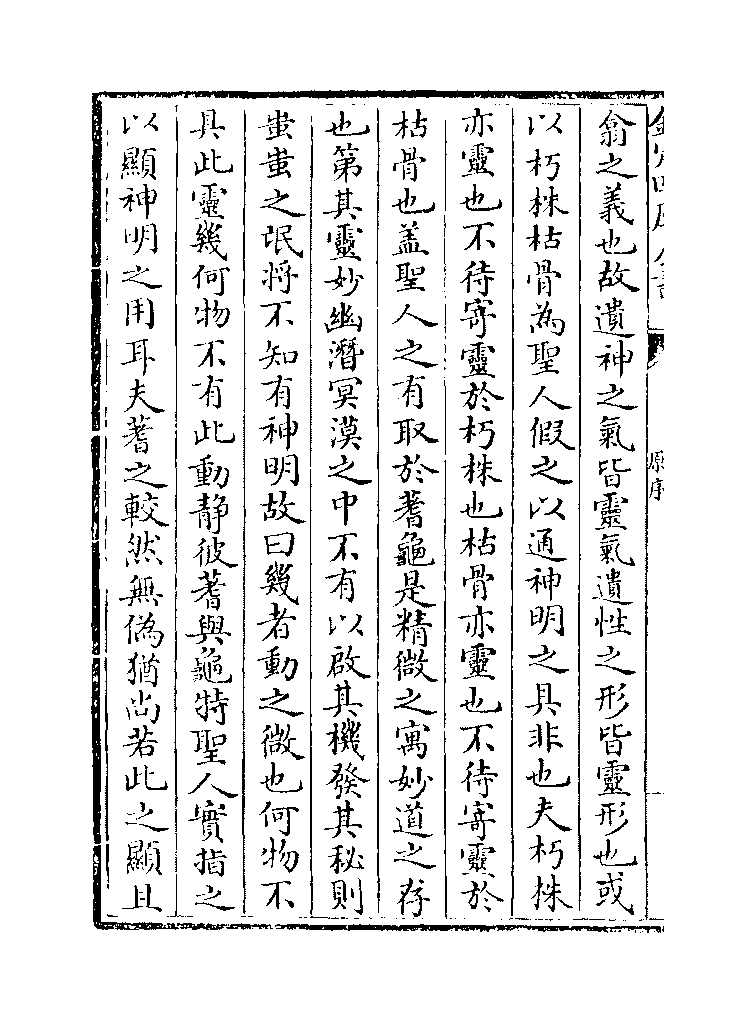 翕之義也故遺神之氣皆靈氣遺性之形皆靈形也或
以朽株枯骨為聖人假之以通神明之具非也夫朽株
亦靈也不待寄靈於朽株也枯骨亦靈也不待寄靈於
枯骨也盖聖人之有取於蓍龜是精微之寓妙道之存
也第其靈妙幽潛冥漠之中不有以啟其機發其秘則
蚩蚩之氓将不知有神明故曰幾者動之微也何物不
具此靈幾何物不有此動静彼蓍與龜特聖人實指之
以顯神明之用耳夫蓍之較然無偽猶尚若此之顯且
原序